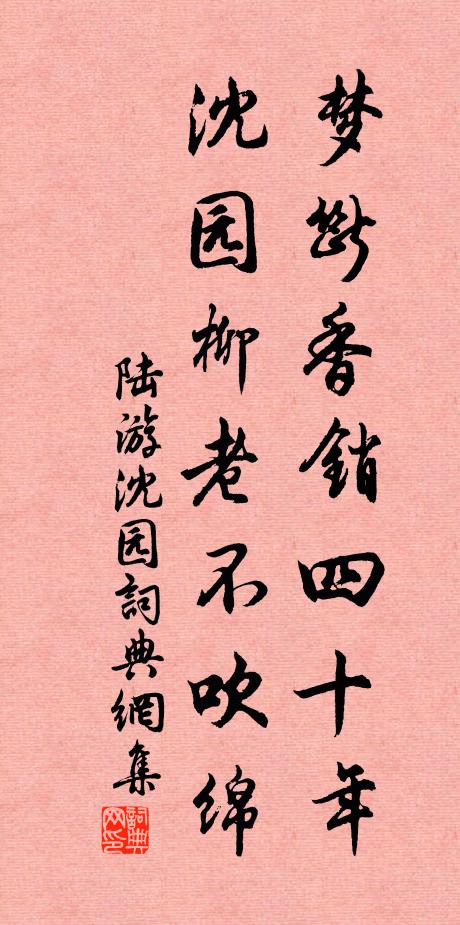 梦断香销四十年
沈园柳老不吹绵
陆游沈园詞典網集
詞典网印